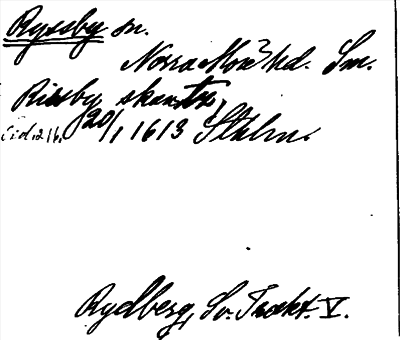 Ryssby sn.
Norra Möre hd. Sm.
Rissby skans
20/1 1613 Sthlm.
Rydberg, Sv. Trakt. V.